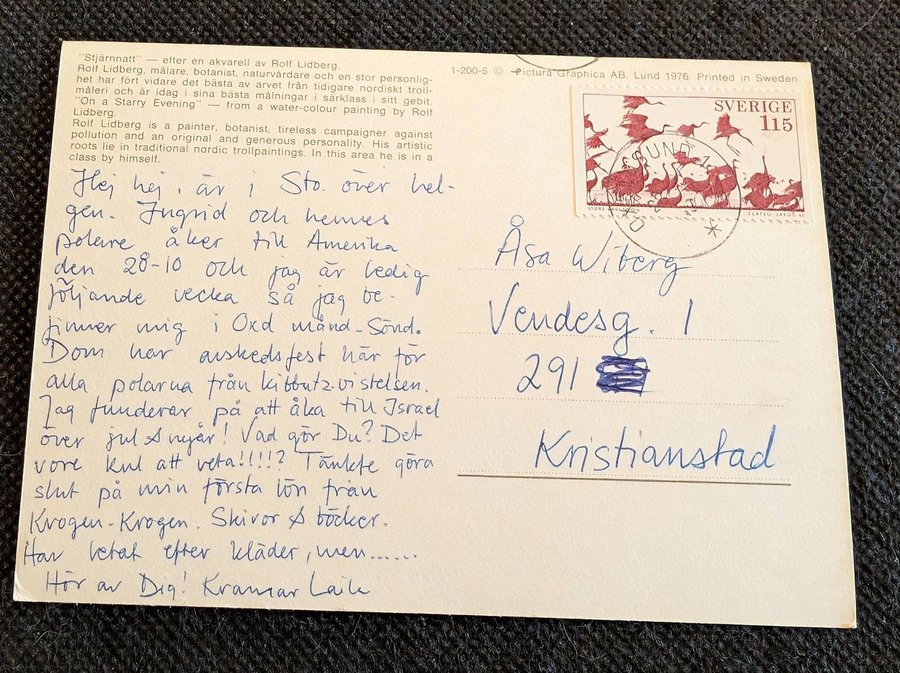 "Stjärnnatt" — efter en akvarell av Rolf Lidberg.
Rolf Lidberg, målare, botanist, naturvårdare och en stor personlig-
het har fört vidare det bästa av arvet från tidigare nordiskt troll-
måleri och är idag i sina bästa målningar i särklass i sitt gebit.
"On a Starry Evening" — from a water-colour painting by Rolf
Lidberg.
Rolf Lidberg is a painter, botanist, tireless campaigner against
pollution and an original and generous personality. His artistic
roots lie in traditional nordic trollpaintings. In this area he is in a
class by himself.
1-200-5 © Pictura Graphica AB, Lund 1976. Printed in Sweden
SVERIGE
115
Hej hej, är i Sto. över hel-
gen. Ingrid och hennes
polare åker till Amerika
den 28-10 och jag är ledig
följande vecka så jag be-
finner mig i Oxd månd-Sönd.
Dom har avskedsfest här för
alla polarna från kibbutz.vistelsen.
Jag funderar på att åka till Israel
över jul & nyår! Vad gör Du? Det
vore kul att veta!!!!? Tänkte göra
slut på min första lön från
Krogen-Krogen. Skivor & böcker.
Har letat efter kläder, men......
Hör av Dig! Kramar Laila
Åsa Wiberg
Vendesg. 1
291
Kristianstad